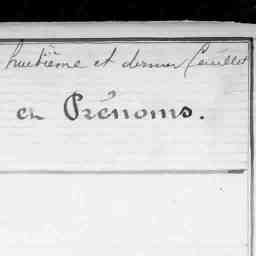 huitième et dernier feuillet
en Prénoms.